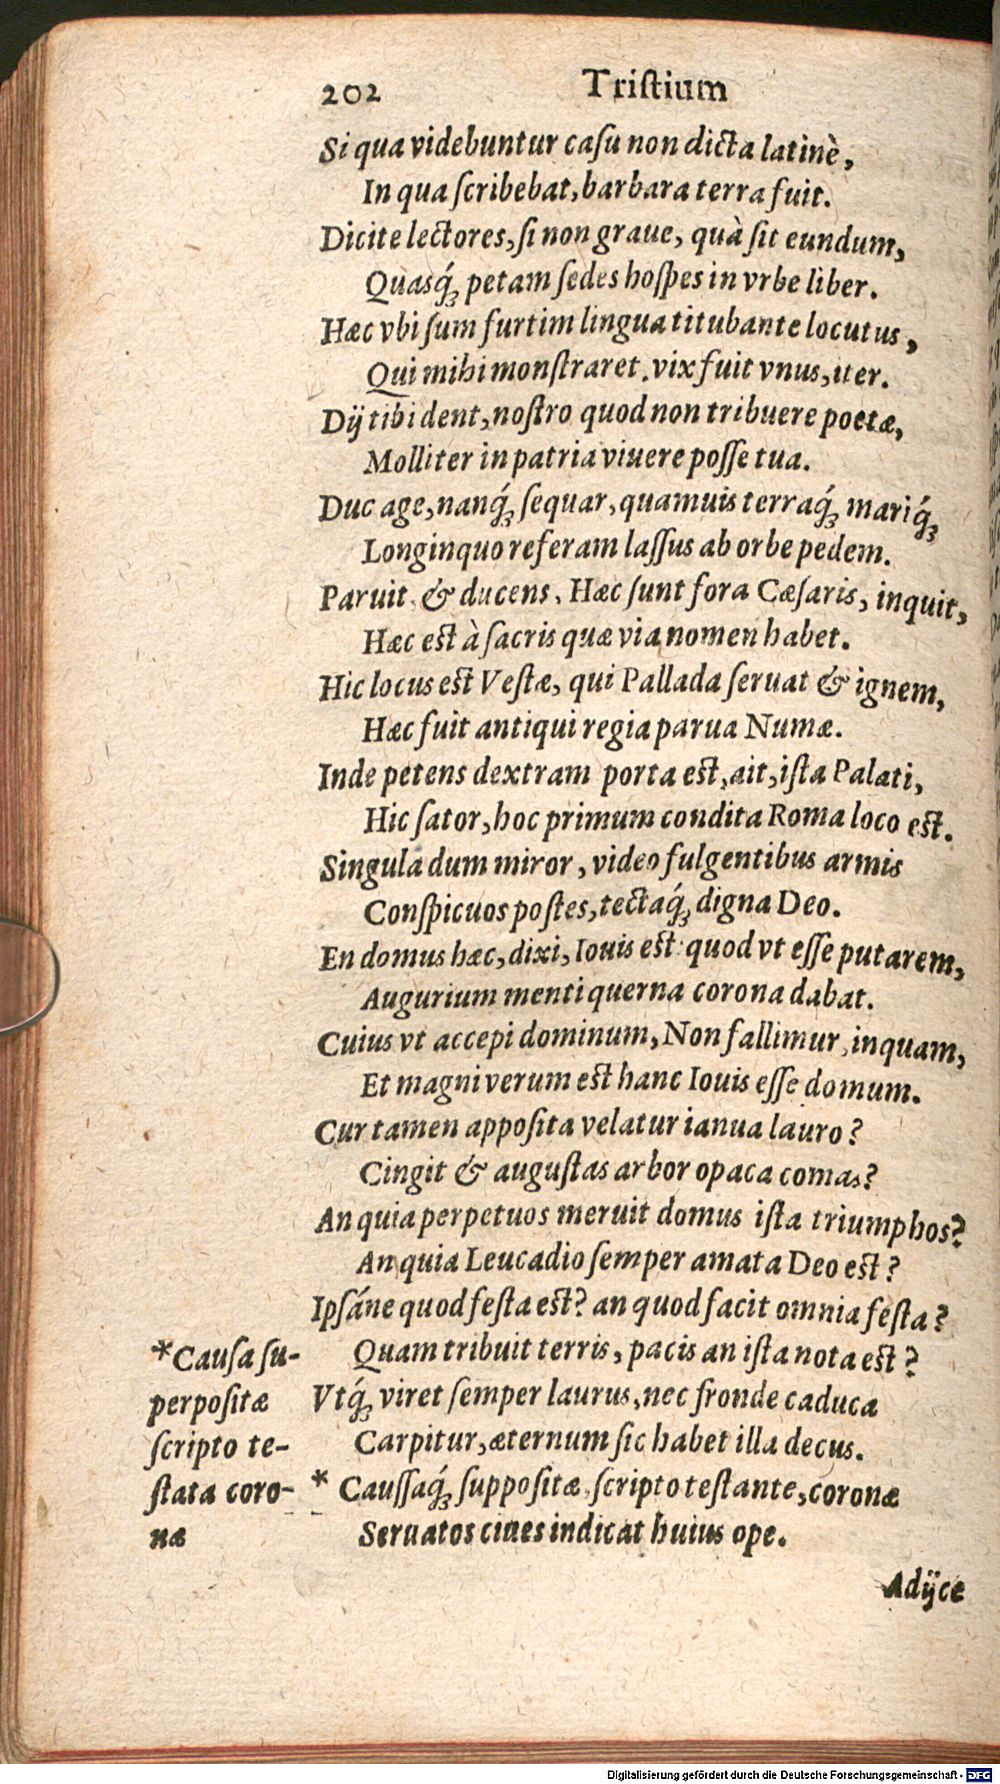 202 Tristium
Si qua videbuntur casu non dicta latinè,
In qua scribebat, barbara terra fuit.
Dicite lectores, si non graue, quà sit eundum,
Quasq́; petam sedes hospes in vrbe liber.
Hæc vbi sum furtim lingua titubante locutus,
Qui mihi monstraret. vix fuit vnus, iter.
Dij tibi dent, nostro quod non tribuere poetæ,
Molliter in patria viuere posse tua.
Duc age, nanq́; sequar, quamuis terraq́; mariq́;
Longinquo referam lassus ab orbe pedem.
Paruit, & ducens, Hæc sunt fora Cæsaris, inquit,
Hæc est à sacris quæ via nomen habet.
Hic locus est Vestæ, qui Pallada seruat & ignem,
Hæc fuit antiqui regia parua Numæ.
Inde petens dextram porta est, ait, ista Palati,
Hic sator, hoc primum condita Roma loco est.
Singula dum miror, video fulgentibus armis
Conspicuos postes, tectaq́; digna Deo.
En domus hæc, dixi, Iouis est: quod vt esse putarem,
Augurium menti querna corona dabat.
Cuius vt accepi dominum, Non fallimur, inquam,
Et magni verum est hanc Iouis esse domum.
Cur tamen apposita velatur ianua lauro?
Cingit & augustas arbor opaca comas?
An quia perpetuos meruit domus ista triumphos?
An quia Leucadio semper amata Deo est?
Ipsáne quod festa est? an quod facit omnia festa?
*Causa su- Quam tribuit terris, pacis an ista nota est?
perpositæ Vtq́; viret semper laurus, nec fronde caduca
scripto te- Carpitur, æternum sic habet illa decus.
stata coro- * Caussaq́; suppositæ scripto testante, coronæ
næ Seruatos ciues indicat huius ope.
Adijce
Digitalisierung gefördert durch die Deutsche Forschungsgemeinschaft - DFG